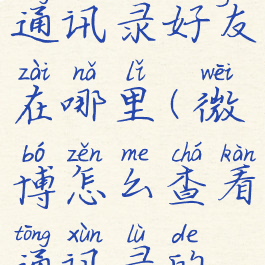 通讯录好友
zài nǎ lǐ wēi
在哪里(微
bó zěn me chá kàn
博怎么查看
tōng xùn lù de
通讯录的